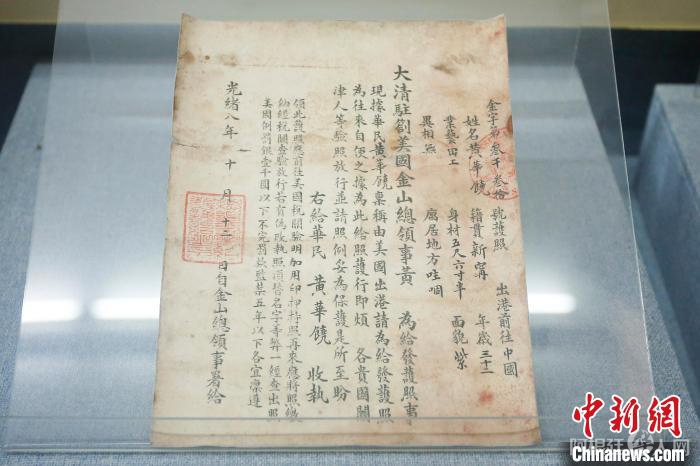 金字第叁千叁拾 號護照 出港前往中國
姓名黃華饒 籍貫新甯 年歲三十二
業藝田工 身材五尺六寸半 面貌紫
異相無 寓居地方哇咽
大清駐劄美國金山總領事黃 為給發護照事
現據華民黃華饒稟稱由美國出港請為給發護照
為往來自便之據為此給照護行即煩 各貴國關
津人等驗照放行並請照例妥為保護是所至盼
右給華民 黃華饒 收執
領此護照應前往美國稅關驗明加用印押持照再來應將照繳
納經稅關查驗放行若有偽改執照頂替名字等弊一經查出照
美國例罰銀壹千圓以下不完罰款監禁五年以下各宜凜遵
光緒八年 十一月 十二日自金山總領事署給
中新网
Chinanews.com
阿根廷华人网